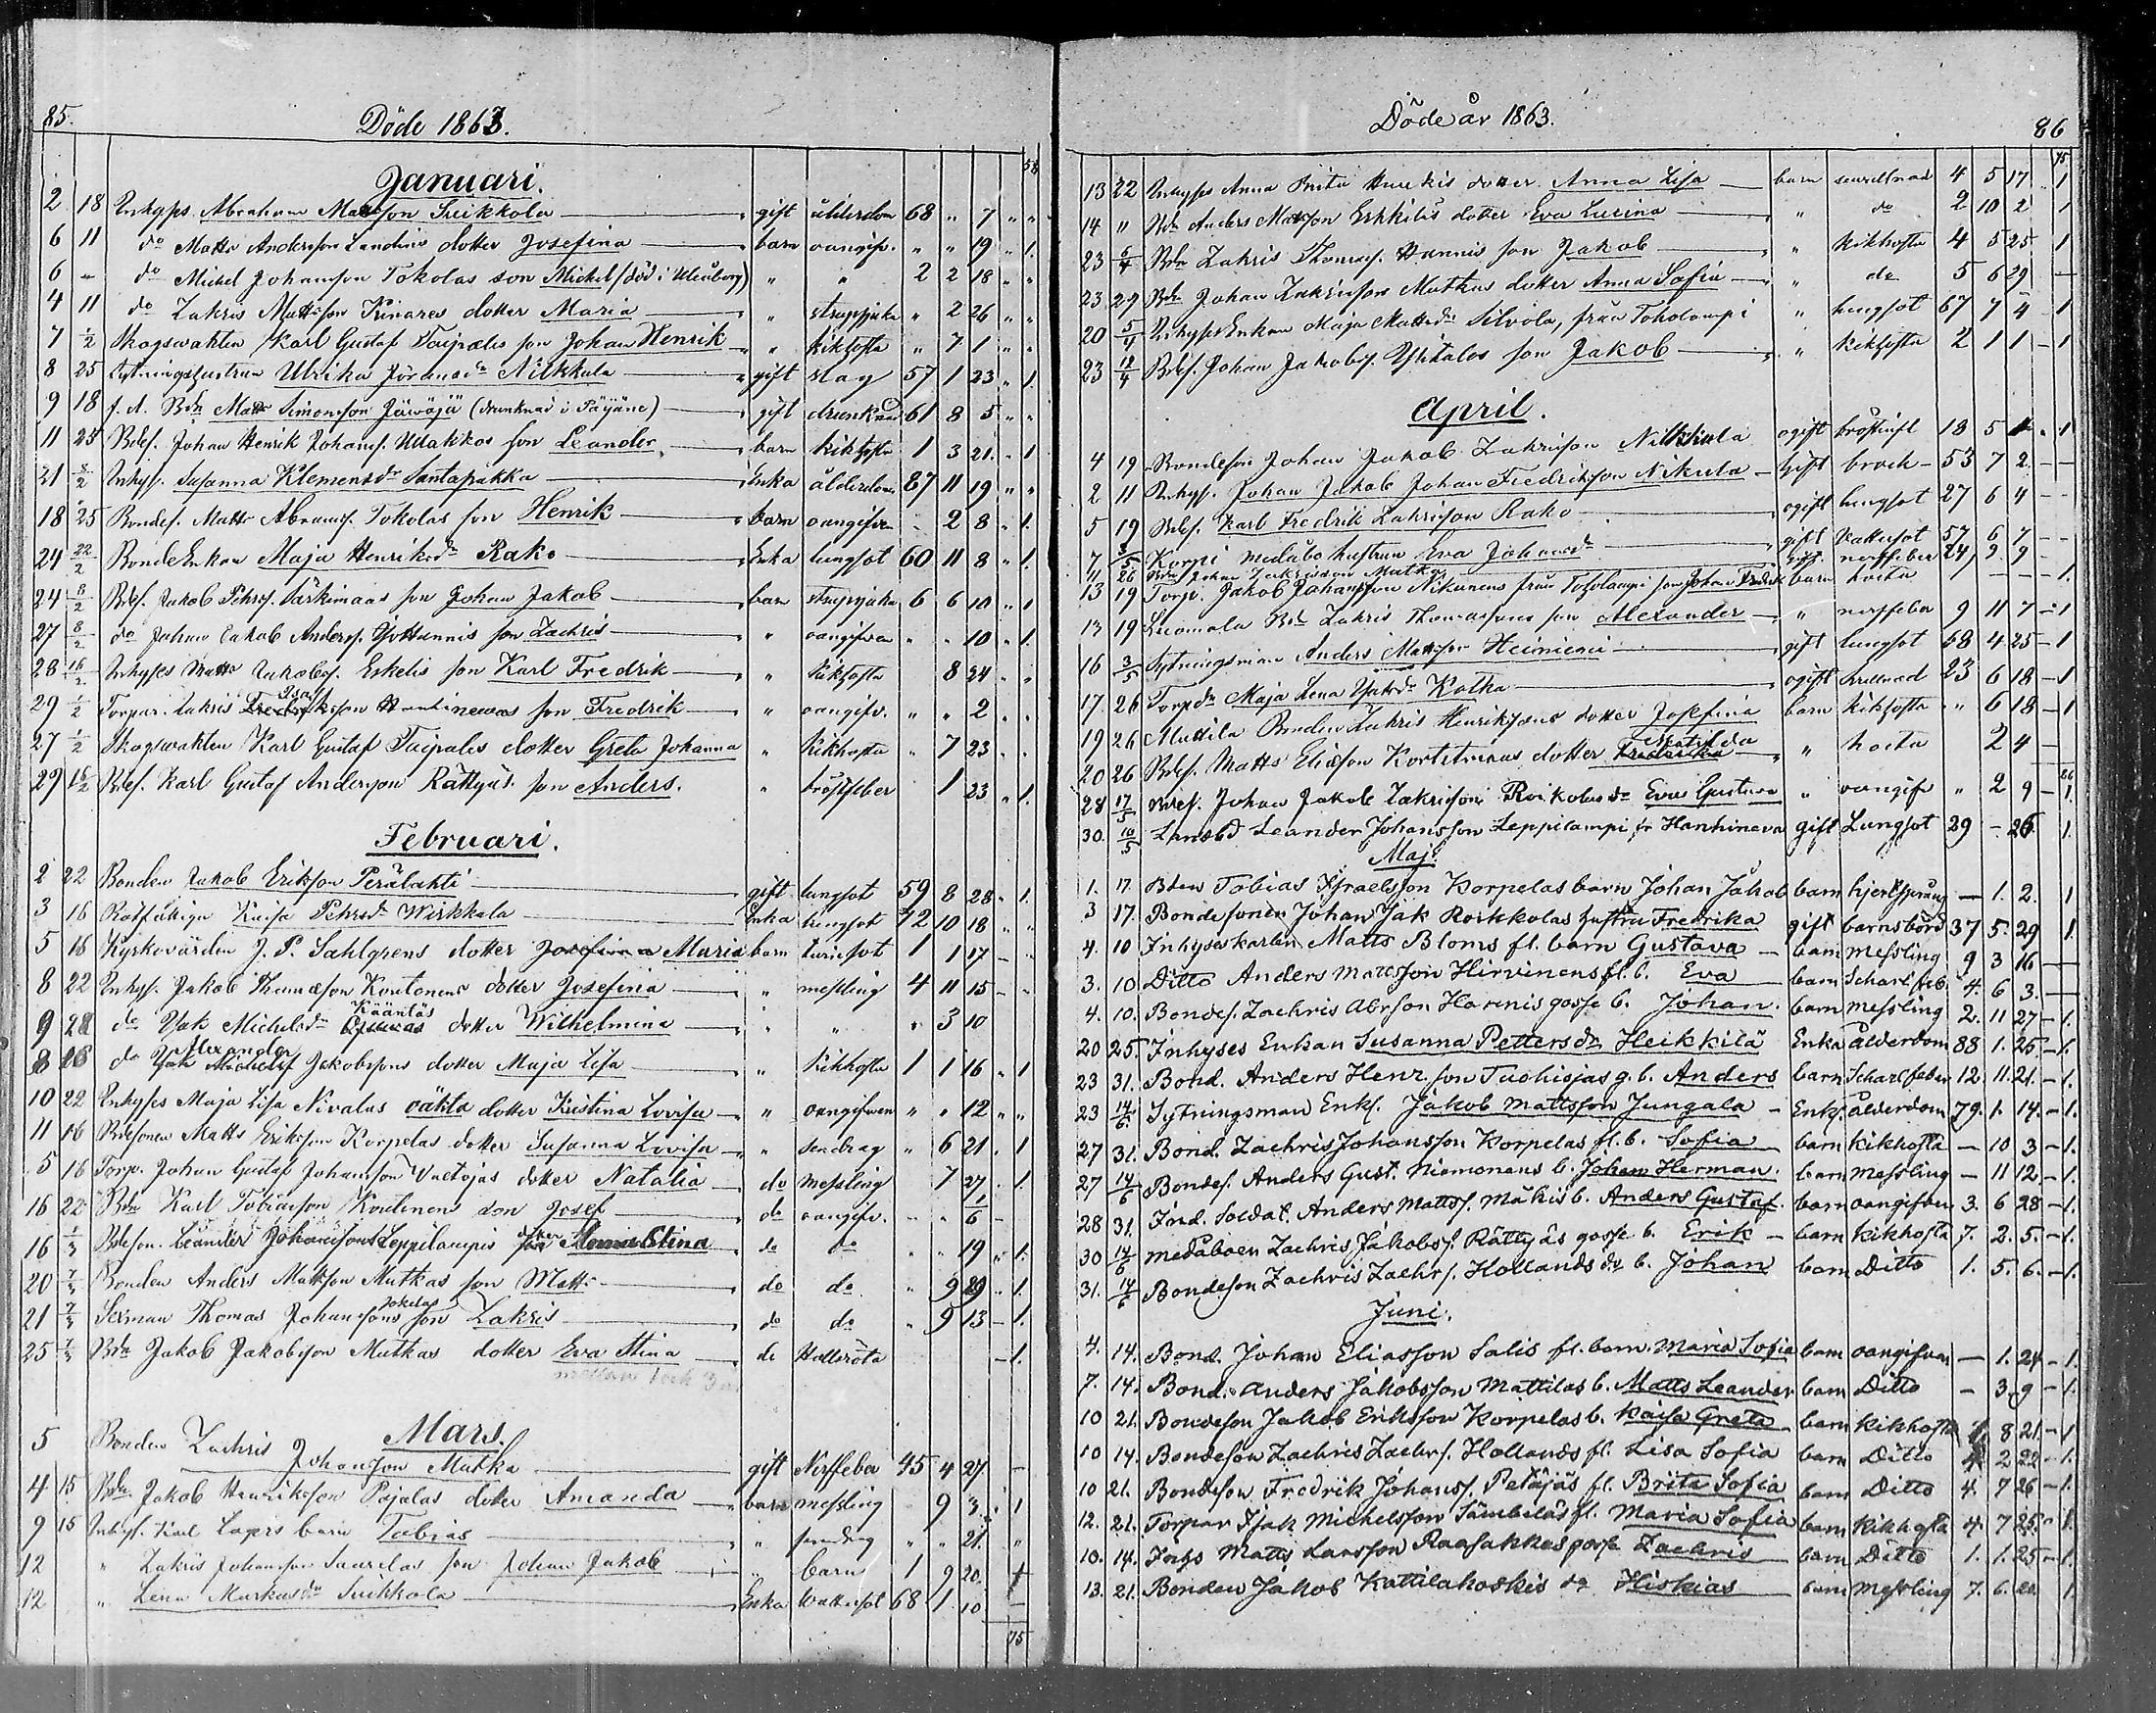 85.
Döde 1863.
58
Januari.
2 18 Inhyss Abraham Matsson Suikkola gift ålderdom 68 " 7 " "
6 11 do Matts Andersson Landins dotter Josefina barn oangifv. " " 19 " 1.
6 - do Michel Johansson Tokolas son Michel (död i Uleåborg) " " 2 2 18 " "
4 11 do Zakris Mattsson Kinares dotter Maria " strypsjuka " 2 26 " "
7 1/2 Skogswakten Karl Gustaf Taipales son Johan Henrik " kikhosta " 7 1 " "
8 25 Sytningshustrun Ulrika Göransdr Nikkula gift slag 57 1 23 " 1.
9 18 f. d. Bdn Matts Simonsson Jäwäjä (drunknad i Päijäne) gift drunknad 61 8 5 " "
11 25 Bdes. Johan Henrik Johanss. Ullakkos son Leander barn kikhosta 1 3 21. " 1
21 8/2 Inhys. Susanna Klemensdr Santapakka Enka ålderdom 87 11 19 " "
18 25 Bondes. Matts Abrams. Tokolas son Henrik barn oangifven - 2 8 " 1.
24 22/2 BondeEnkan Maja Henriksdr Rako Enka lungsot 60 11 8 " 1.
24 8/2 Bdes. Jakob Pehrs. Särkimaas son Johan Jakob barn strypsjuka 6 6 10 " 1
27 8/2 do Johan Jakob Anderss. Hannis son Zachris " oangifven " " 10 " 1.
28 16/2 Inhyses Matts Jakobss. Eskelis son Karl Fredrik " kikhosta 8 24 " "
29 1/2 Torpar. Zakris Isaksson Hautinewas son Fredrik " oangifv. " " 2 " "
27 1/2 Skogswakten Karl Gustaf Taipales dotter Greta Johanna " kikhosta " 7 23 " "
29 15/2 Bdes. Karl Gustaf Andersson Rättyäs. son Anders. " bröstfeber 1 23 " 1.
Februari.
2 22 Bonden Jakob Eriksson Perälahti gift lungsot 59 8 28 " 1.
3 16 Rotfattiga Kaisa Pehrsdr Wirkkala Enka lungsot 72 10 18 " "
5 16 Kyrkovärden J. P. Sahlgrens dotter Josefina Maria barn 1 1 17 - "
8 22 Inhys. Jakob Thomasson Kontonens dotter Josefina " messling 4 11 15 - "
9 22 do Isak Michelsdr Kääntäs dotter Wilhelmina " " " 3 10
8 16 do Alexander Jakobssons dotter Maja Lisa " kikhosta 1 1 16 " 1
10 22 Inhyses Maja Lisa Nivalas oäkta dotter Kristina Lovisa " oangifven " " 12 " "
11 16 Bdesonen Matts Eriksson Korpelas dotter Susanna Lovisa " sendrag " 6 21 " 1
5 16 Torp. Johan Gustaf Johansson Valtojas dotter Natalia do messling 7 27 " 1.
16 22 Bdn Karl Tobiasson Koutinens son Josef do oangifv. " " 1/6 -
16 1/3 Bdeson. Leander Johanssons Leppilampis dotter Maria Stina do do " " 19 " 1.
20 7/3 Bonden Anders Mattsson Mutkas son Matts do do " 9 29 " 1.
21 7/3 Sexman Thomas Johanssons Jokelas son Zakris do do " 9 13 - 1.
25 7/3 Bdn Jakob Jakobsson Mutkas dotter Eva Stina do Hallsröta - 1.
mellan 1 och 3
Mars.
5 Bonden Zachris Johansson Mutka gift Nerffeber 45 4 27. -
4 15 Bdn Jakob Henriksson Pajalas dotter Amanda barn messling - 9 3 " 1
9 15 Inhys. Karl Lagers barn Tobias " sendrag " " 21. "
12 " Zakris Johansson Saarelas son Johan Jakob " barn 1 9 20. 1
12 " Lena Markusdr Suikkola Enka Wattusot 68 1. 10 -
75
Döde år 1863.
86
75
13 22 Inhyses Anna Brita Hunkis dotter Anna Lisa barn 4 5 17 " 1
14 " Bdn Anders Matsson Eskkilis dotter Eva Lucina " do 2 10 2 1
23 6/4 Bdn Zakris Thomass. Hannis son Jakob " kikhosta 4 5 25 1
23 27 Bdn Johan Zakrisson Mutkas dotter Anna Sofia " do 5 6 29 -
20 5/4 InhysesEnkan Maja Mattsdr Silvola, från Toholampi " lungsot 67 7 4 - 1
23 12/4 Bdes. Johan Jakobss. Ylitalos son Jakob " kikhosta 2 1 1 - 1
April.
4 19 Bondeson Johan Jakob Zakrisson Nikkula ogift 18 5 1 " 1
2 11 Inhys. Johan Jakob Johan Fredriksson Nikula gift brock 53 7 2 - -
5 19 Bdes. Karl Fredrik Zakrisson Rako ogift lungsot 27 6 4 - -
7 3/5 Korpi medåbo hustrun Eva Johansdr gift Wattusot 57 6 7 - -
11 26 Bdn Johan Zakrisson Mutka gift nerffeber 24 9 9 -
13 19 Torp. Jakob Johansson Nikunens från Toholampi son Johan Fredrik barn hosta 1 - - - 1.
13 19 Luomala Bdn Zakris Thomassons son Alexander " nerffeber 9 11 7 - 1
16 3/5 Sytningsman Anders Matsson Heiniemi gift lungsot 68 4 25 - 1
17 26 Torpdr Maja Lena Isaksdr Kotka ogift 23 6 18 - 1
19 26 Mattila Bonden Zakris Henrikssons dotter Josefina barn kikhosta " 6 18 - 1
20 26 Bdes. Matts Eliasson Kortetmaas dotter Matilda " hosta 2 4 -
26
28 17/5 Bdes. Johan Jakob Zakrissons Roikolas dr Eva Gustava " oangifv " 2 9 - 1.
30. 10/5 Leander Johansson Leppilampi fr Hanhineva gift Lungsot 29 - 26 1.
Maj.
1. 17. Bden Tobias Israelsson Korpelas barn Johan Jakob barn hjertsprång - 1. 2. 1
3 17. Bondesonen Johan Jak Roikkolas hustru Fredrika gift barnsbörd 37 5. 29 1.
4. 10 Inhyseskarlen Matts Bloms fl. barn Gustava barn Messling 9 3 16 -
3. 10 Ditto Anders Mattsson Hirvinens fl. b. Eva barn Scharl.feb. 4. 6 3. -
4. 10. Bondes. Zachris Abrsson Harenis gosse b. Johan. barn Messling 2. 11 27 - 1.
20 25. Inhyses Enkan Susanna Pettersdr Heikkilä Enka ålderdom 88 1. 25 - 1.
23 31. Bond. Anders Henr. son Tuohisjas g. b. Anders barn Scharl.feber 12. 11. 21. - 1.
23 14/6. Sytningsman Enkl. Jakob Mattsson Jungala - Enkl. ålderdom 79. 1. 14. - 1.
27 31. Bond. Zachris Johansson Korpelas fl. b. Sofia barn kikhosta - 10 3 - 1.
27 14/6 Bondes. Anders Gust. Niemonens b. Johan Herman. barn Messling - 11 12 - 1.
28 31. Ind. Soldat. Anders Mattss. Mäkis b. Anders Gustaf. barn oangifven 3. 6 28 - 1.
30 14/6 Medåboen Zachris Jakobs. Rättyäs gosse b. Erik - barn kikhosta 7. 2. 5. - 1.
31. 14/6 Bondeson Zachris Zachrs. Hollands do b. Johan barn Ditto 1. 5. 6. - 1.
Juni.
4. 14. Bond. Johan Eliasson Salis fl. barn. Maria Sofia barn oangifven - 1. 24 - 1.
7. 14. Bond. Anders Jakobsson Mattilas b. Matts Leander barn Ditto - 3. 9 - 1.
10 21. Bondeson Jakob Eriksson Korpelas b. Kaisa Greta barn kikhosta 1. 8 21. - 1
10 14. Bondeson Zachris Zachrs. Hollands fl. Lisa Sofia barn Ditto 4. 2 22 - 1.
10 21. Bondeson Fredrik Johanss. Petäjäs fl. Brita Sofia barn Ditto 4. 7 26 - 1.
12. 21. Torpar Isak Michelsson Sämbiläs fl. Maria Sofia barn Kikhosta 4. 7 25. - 1.
10. 14. Inhys Matts Larsson Raasakkas gosse Zachris barn Ditto 1. 1. 25 - 1.
13. 21. Bonden Jakob Kattilakoskis do Hiskias barn Messling 7. 6. 20. 1.